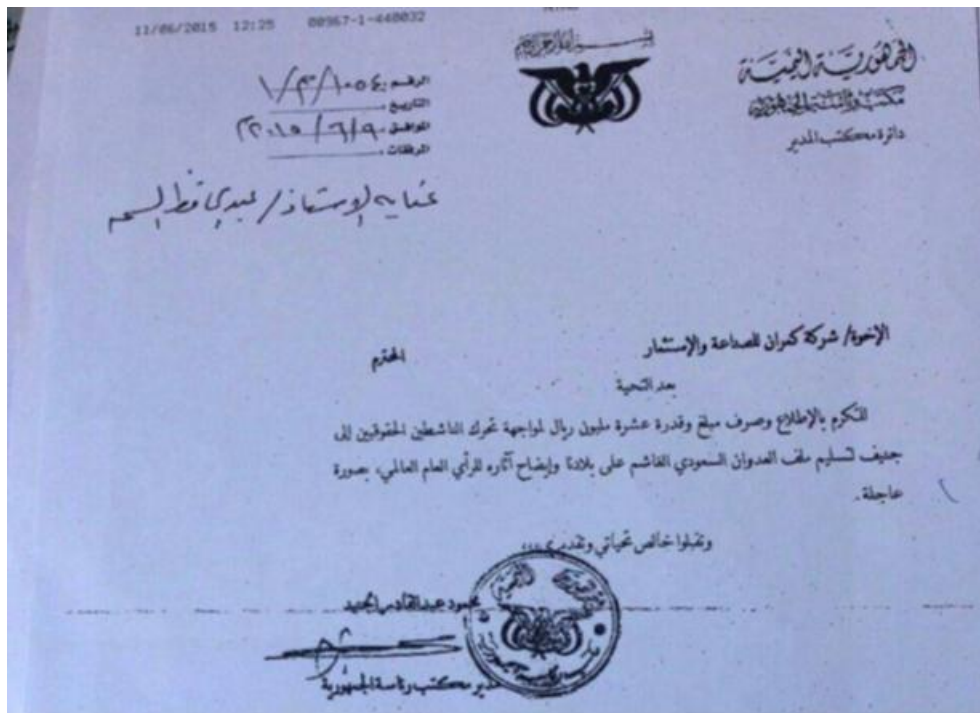 11/06/2015 12:25 00967-1-440032
الجمهورية اليمنية
مكتب رئاسة الجمهورية
دائرة مكتب المدير
الرقم: ١/٣/١٠٥٤
التاريخ:
الموافق: ٢٠١٥/٦/٩م
المرفقات:
عناية الاستاذ/
الإخوة/ شركة كمران للصناعة والإستثمار المحترم
بعد التحية
للتكرم بالإطلاع وصرف مبلغ وقدرة عشرة مليون ريال لمواجهة تحرك الناشطين الحقوقيين إلى
جنيف لتسليم ملف العدوان السعودي الغاشم على بلادنا وإيضاح آثاره للرأي العام العالمي، بصورة
عاجلة.
وتقبلوا خالص تحياتي وتقديري،،،
محمود عبدالقادر الجنيد
مدير مكتب رئاسة الجمهورية